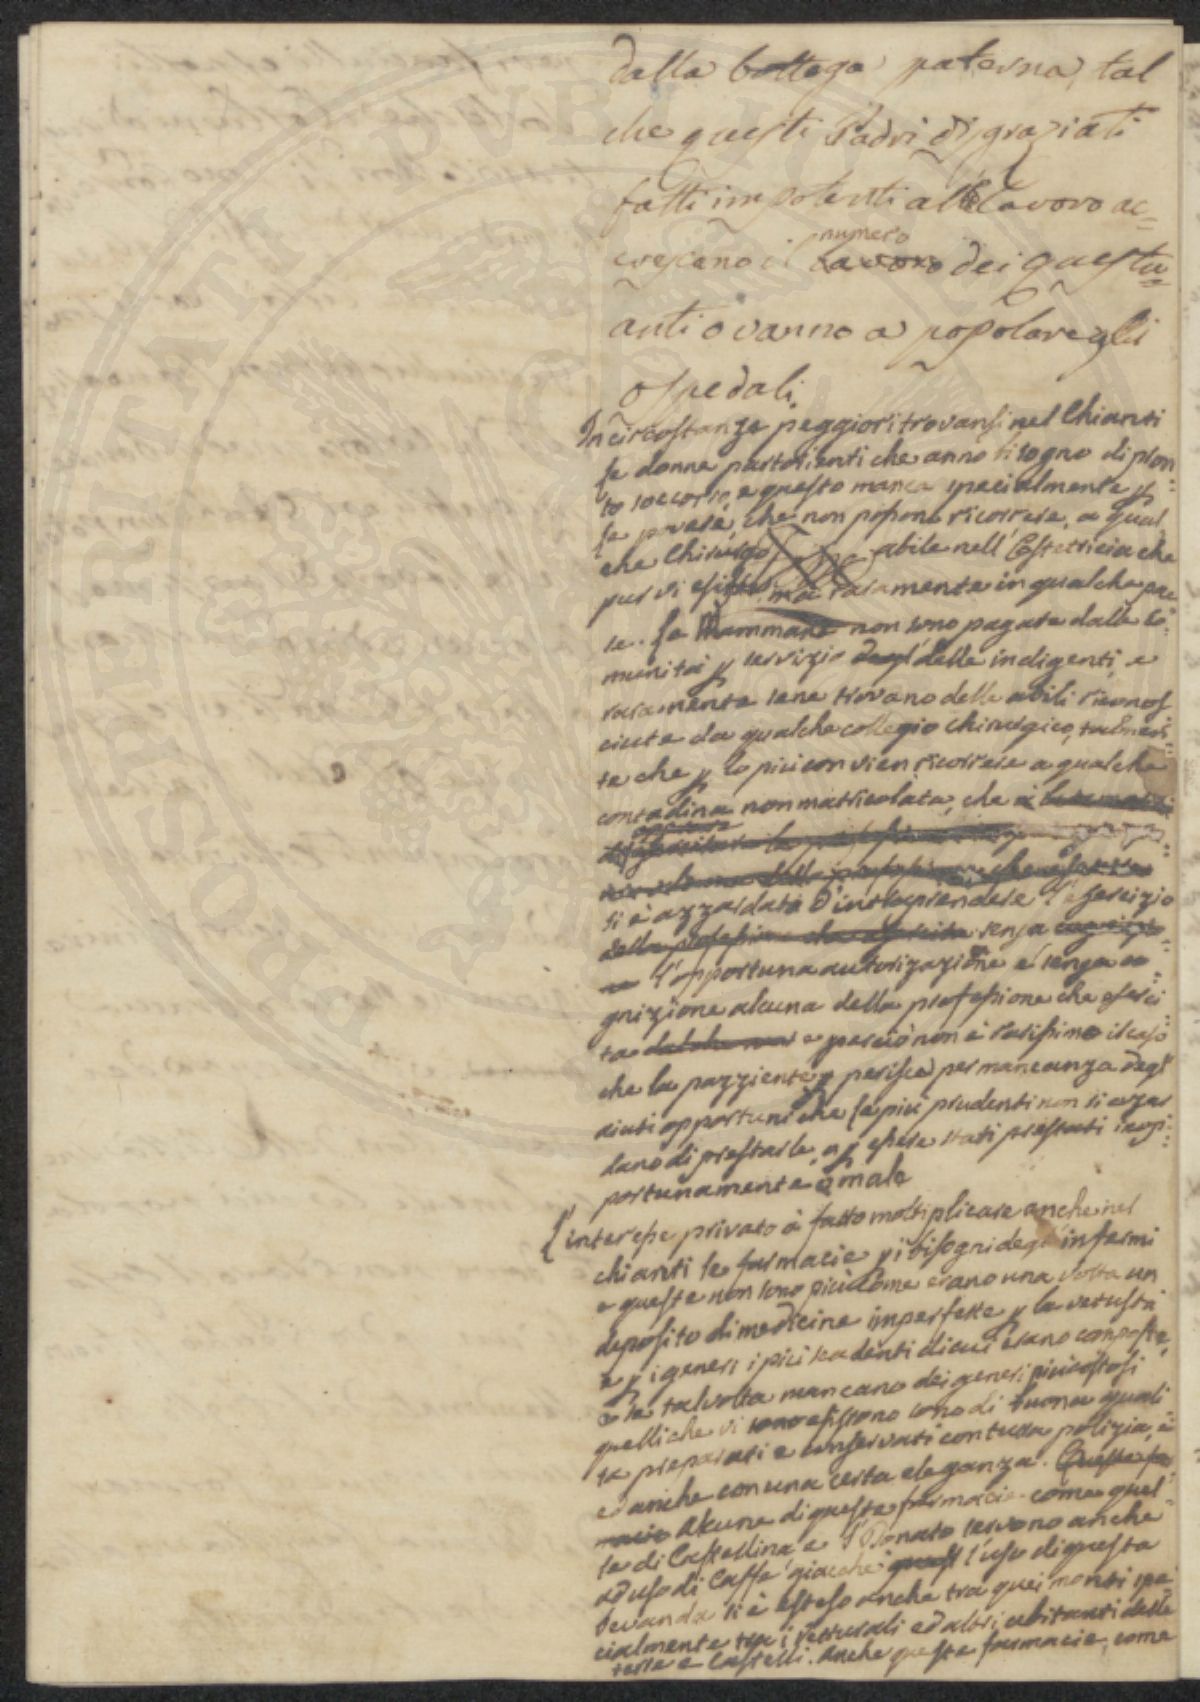 dalla bottega paterna, tal
che questi Padri disgraziati
fatti impotenti al lavoro ac=
crescano il numero lavoro dei questu=
anti o vanno a popolare gli
ospedali.
In circostanze peggiori trovansi nel Chianti
le donne partorienti che anno bisogno di pron
to soccorso, e questo manca specialmente p
le povere, che non possono ricorrere, a qual
che Chirurgo abile nell'Ostetricia che
pur vi esiste ma raramente in qualche pae
se. Le Mammane non sono pagate dalle Co
munità p servizio degl delle indigenti, e
raramente sene trovano delle abili riconos
ciute da qualche collegio Chirurgico, talmen
te che p lo più convien ricorrere a qualche
contadina non matricolata, che
si è azzardata d'intraprendere l'esercizio
della professione che esercita senza
l'opportuna autorizazione e senza co
gnizione alcuna della professione che eserci
ta e perciò non è rarissimo il caso
che la pazziente perisca per mancanza degl
aiuti opportuni che le più prudenti non si azar
dano di prestarle, o p essere stati prestati inop
portunamente o male
L'interesse privato à fatto moltiplicare anche nel
chianti le farmacie p i bisogni degl'infermi
e queste non sono più come erano una volta un
deposito di medicine imperfette p la vetustà
e p i generi i più scadenti di cui erano composte,
e se talvolta mancano dei generi più costosi
quelli che vi sono esistono sono di buona quali
tà preparati e conservati con tutta polizia, e
ed anche con una certa eleganza. Queste far
macie Alcune di queste farmacie come quel
le di Castellina e S. Donato servono anche
ad uso di Caffè giacchè quest l'uso di questa
bevanda si è esteso anche tra quei monti spe
cialmente tra i ed altri abitanti delle
terre e Castelli. Anche queste farmacie, come